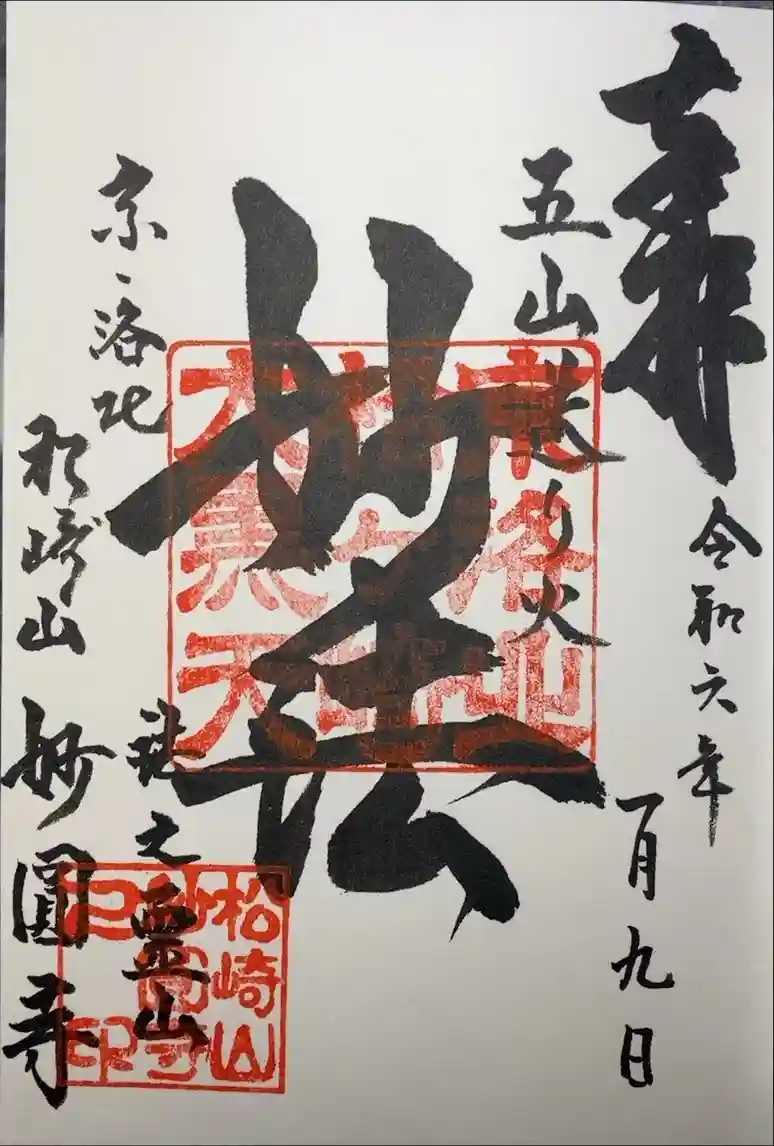 奉拝
令和六年
一月九日
五山送り火
妙法
京、洛北
之霊山
松崎山 妙圓寺
京洛北
松ヶ崎
大黒天
松崎山
妙圓寺
之印